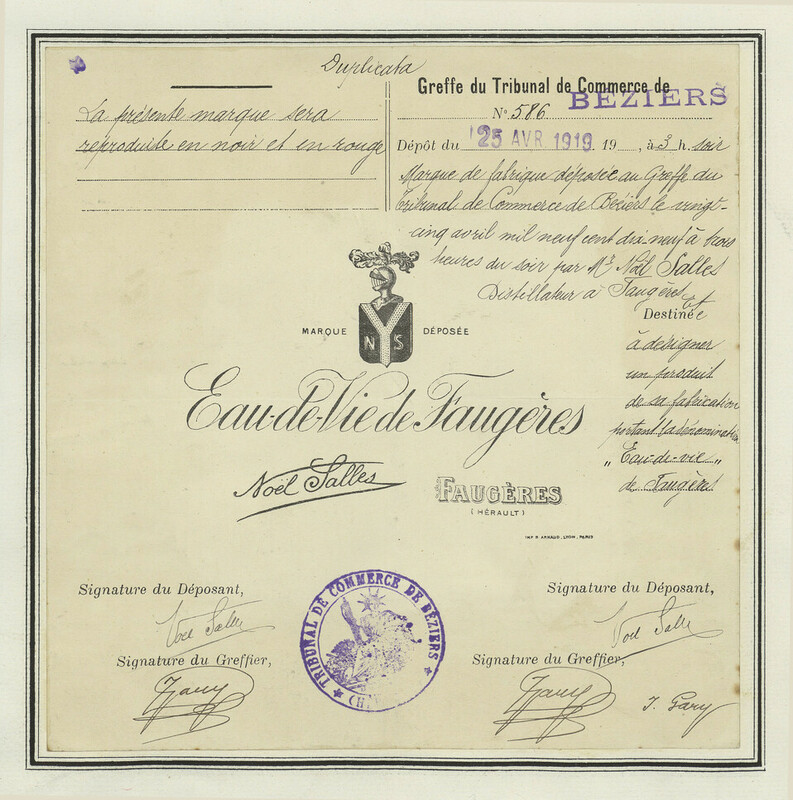 Duplicata
La présente marque sera
reproduite en noir et en rouge
Greffe du Tribunal de Commerce de
BÉZIERS
N° 586
Dépôt du 25 AVR. 1919 19 , à 3 h. soir
Marque de fabrique déposée au Greffe du
Tribunal de Commerce de Béziers le vingt-
cinq avril mil neuf cent dix neuf à trois
heures du soir par Mr Noël Salles
Distillateur à Faugères et
Destinée
à désigner
un produit
de sa fabrication
portant la dénomination
"Eau-de-vie"
de Faugères
MARQUE DÉPOSÉE
N S
Eau-de-Vie de Faugères
Noël Salles
FAUGÈRES
(HÉRAULT)
IMP. B. ARNAUD, LYON, PARIS
Signature du Déposant,
Noël Salles
Signature du Greffier,
TRIBUNAL DE COMMERCE DE BÉZIERS
Signature du Déposant,
Noël Salles
Signature du Greffier,
J. Gary